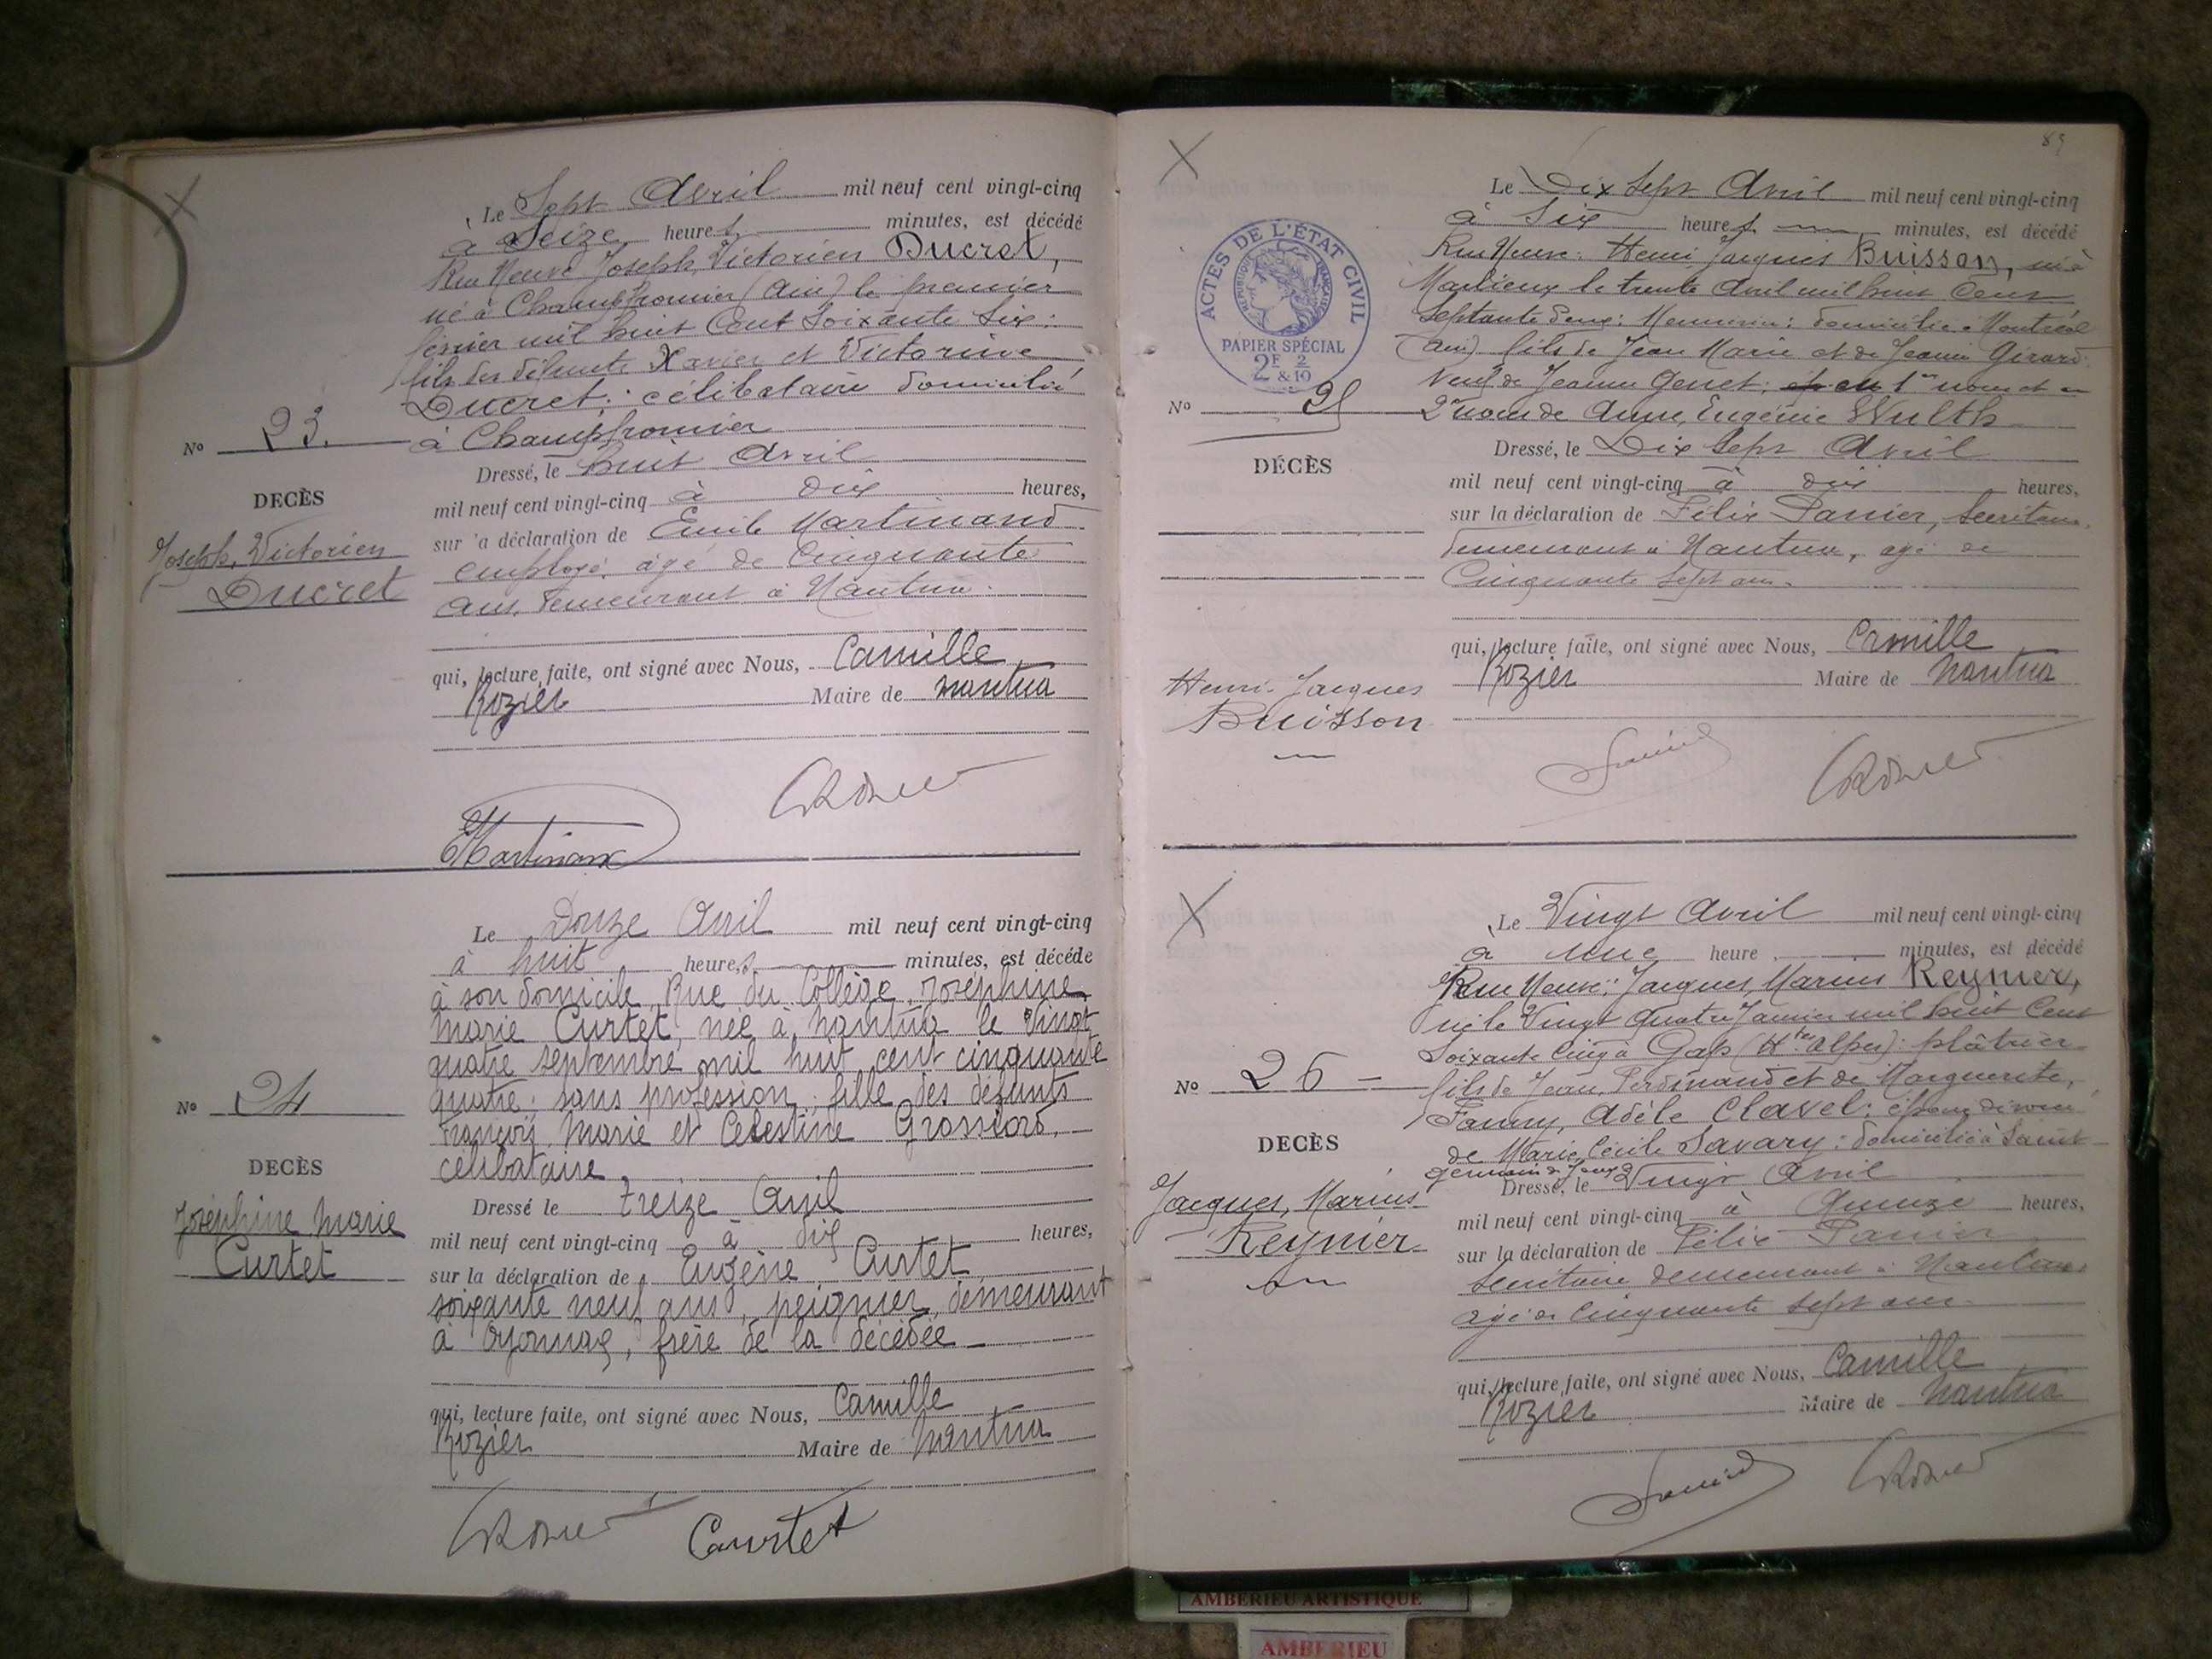 Le Sept Avril mil neuf cent vingt-cinq
à Seize heures minutes, est décédé
Rue Neuve Joseph, Victorien Ducret,
né à Champfromier (Ain) le premier
février mil huit Cent Soixante Six:
fils des défunts Xavier et Victorine
Ducret: célibataire domicilié
à Champfromier
No 23.
DECÈS
Joseph, Victorien
Ducret
Dressé, le huit Avril
mil neuf cent vingt-cinq à dix heures,
sur 'a déclaration de Emile Martinand
employé, âgé de Cinquante
ans, demeurant à Nantua.
qui, lecture faite, ont signé avec Nous, Camille
Rozier Maire de nantua
EMartinand
Le Douze Avril mil neuf cent vingt-cinq
à huit heures minutes, est décédé
à son domicile, Rue du Collège, Joséphine
Marie Curtet, née à Nantua le Vingt
quatre septembre mil huit cent cinquante
quatre; sans profession; fille des défunts
François Marie et Célestine Grossiord,
célibataire
No 24
DECÈS
Joséphine Marie
Curtet
Dressé le treize Avril
mil neuf cent vingt-cinq à dix heures,
sur la déclaration de Eugène Curtet
soixante neuf ans, peignier, demeurant
à Oyonnax, frère de la décédée
qui, lecture faite, ont signé avec Nous, Camille
Rozier Maire de Nantua
Curtet
Le Dix Sept Avril mil neuf cent vingt-cinq
à Six heures minutes, est décédé
Rue Neuve: Henri Jacques Buisson, né à
Marlieux le trente Avril mil huit Cent
Septante deux: domicilié à Montréal
(Ain) fils de Jean Marie et de Jeanne Girard
Veuf de Jeanne Genet; en 1er noces et en
2e noces de Anne, Eugénie Wulth
ACTES DE L'ÉTAT CIVIL
RÉPUBLIQUE FRANÇAISE
PAPIER SPÉCIAL
2F 2/10
No 25
DÉCÈS
Henri-Jacques
Buisson
Dressé, le Dix Sept Avril
mil neuf cent vingt-cinq à dix heures,
sur la déclaration de Félix Panier, Secrétaire,
demeurant à Nantua, âgé de
Cinquante Sept ans.
qui, lecture faite, ont signé avec Nous, Camille
Rozier Maire de Nantua
Le Vingt Avril mil neuf cent vingt-cinq
à une heure minutes, est décédé
Rue Neuve: Jacques, Marius Reynier,
né le Vingt quatre Janvier mil huit Cent
Soixante Cinq à Gap (Htes Alpes): plâtrier
fils de Jean, Ferdinand et de Marguerite,
Fanny, Adèle Clavel: époux divorcé
de Marie, Cécile Savary: domicilié à Saint
Germain de Joux
No 26
DECÈS
Jacques, Marius
Reynier
Dressé, le Vingt Avril
mil neuf cent vingt-cinq à Quinze heures,
sur la déclaration de Félix Panier
Secrétaire demeurant à Nantua
âgé de Cinquante Sept ans.
qui, lecture faite, ont signé avec Nous, Camille
Rozier Maire de Nantua
AMBERIEU ARTISTIQUE
AMBERIEU